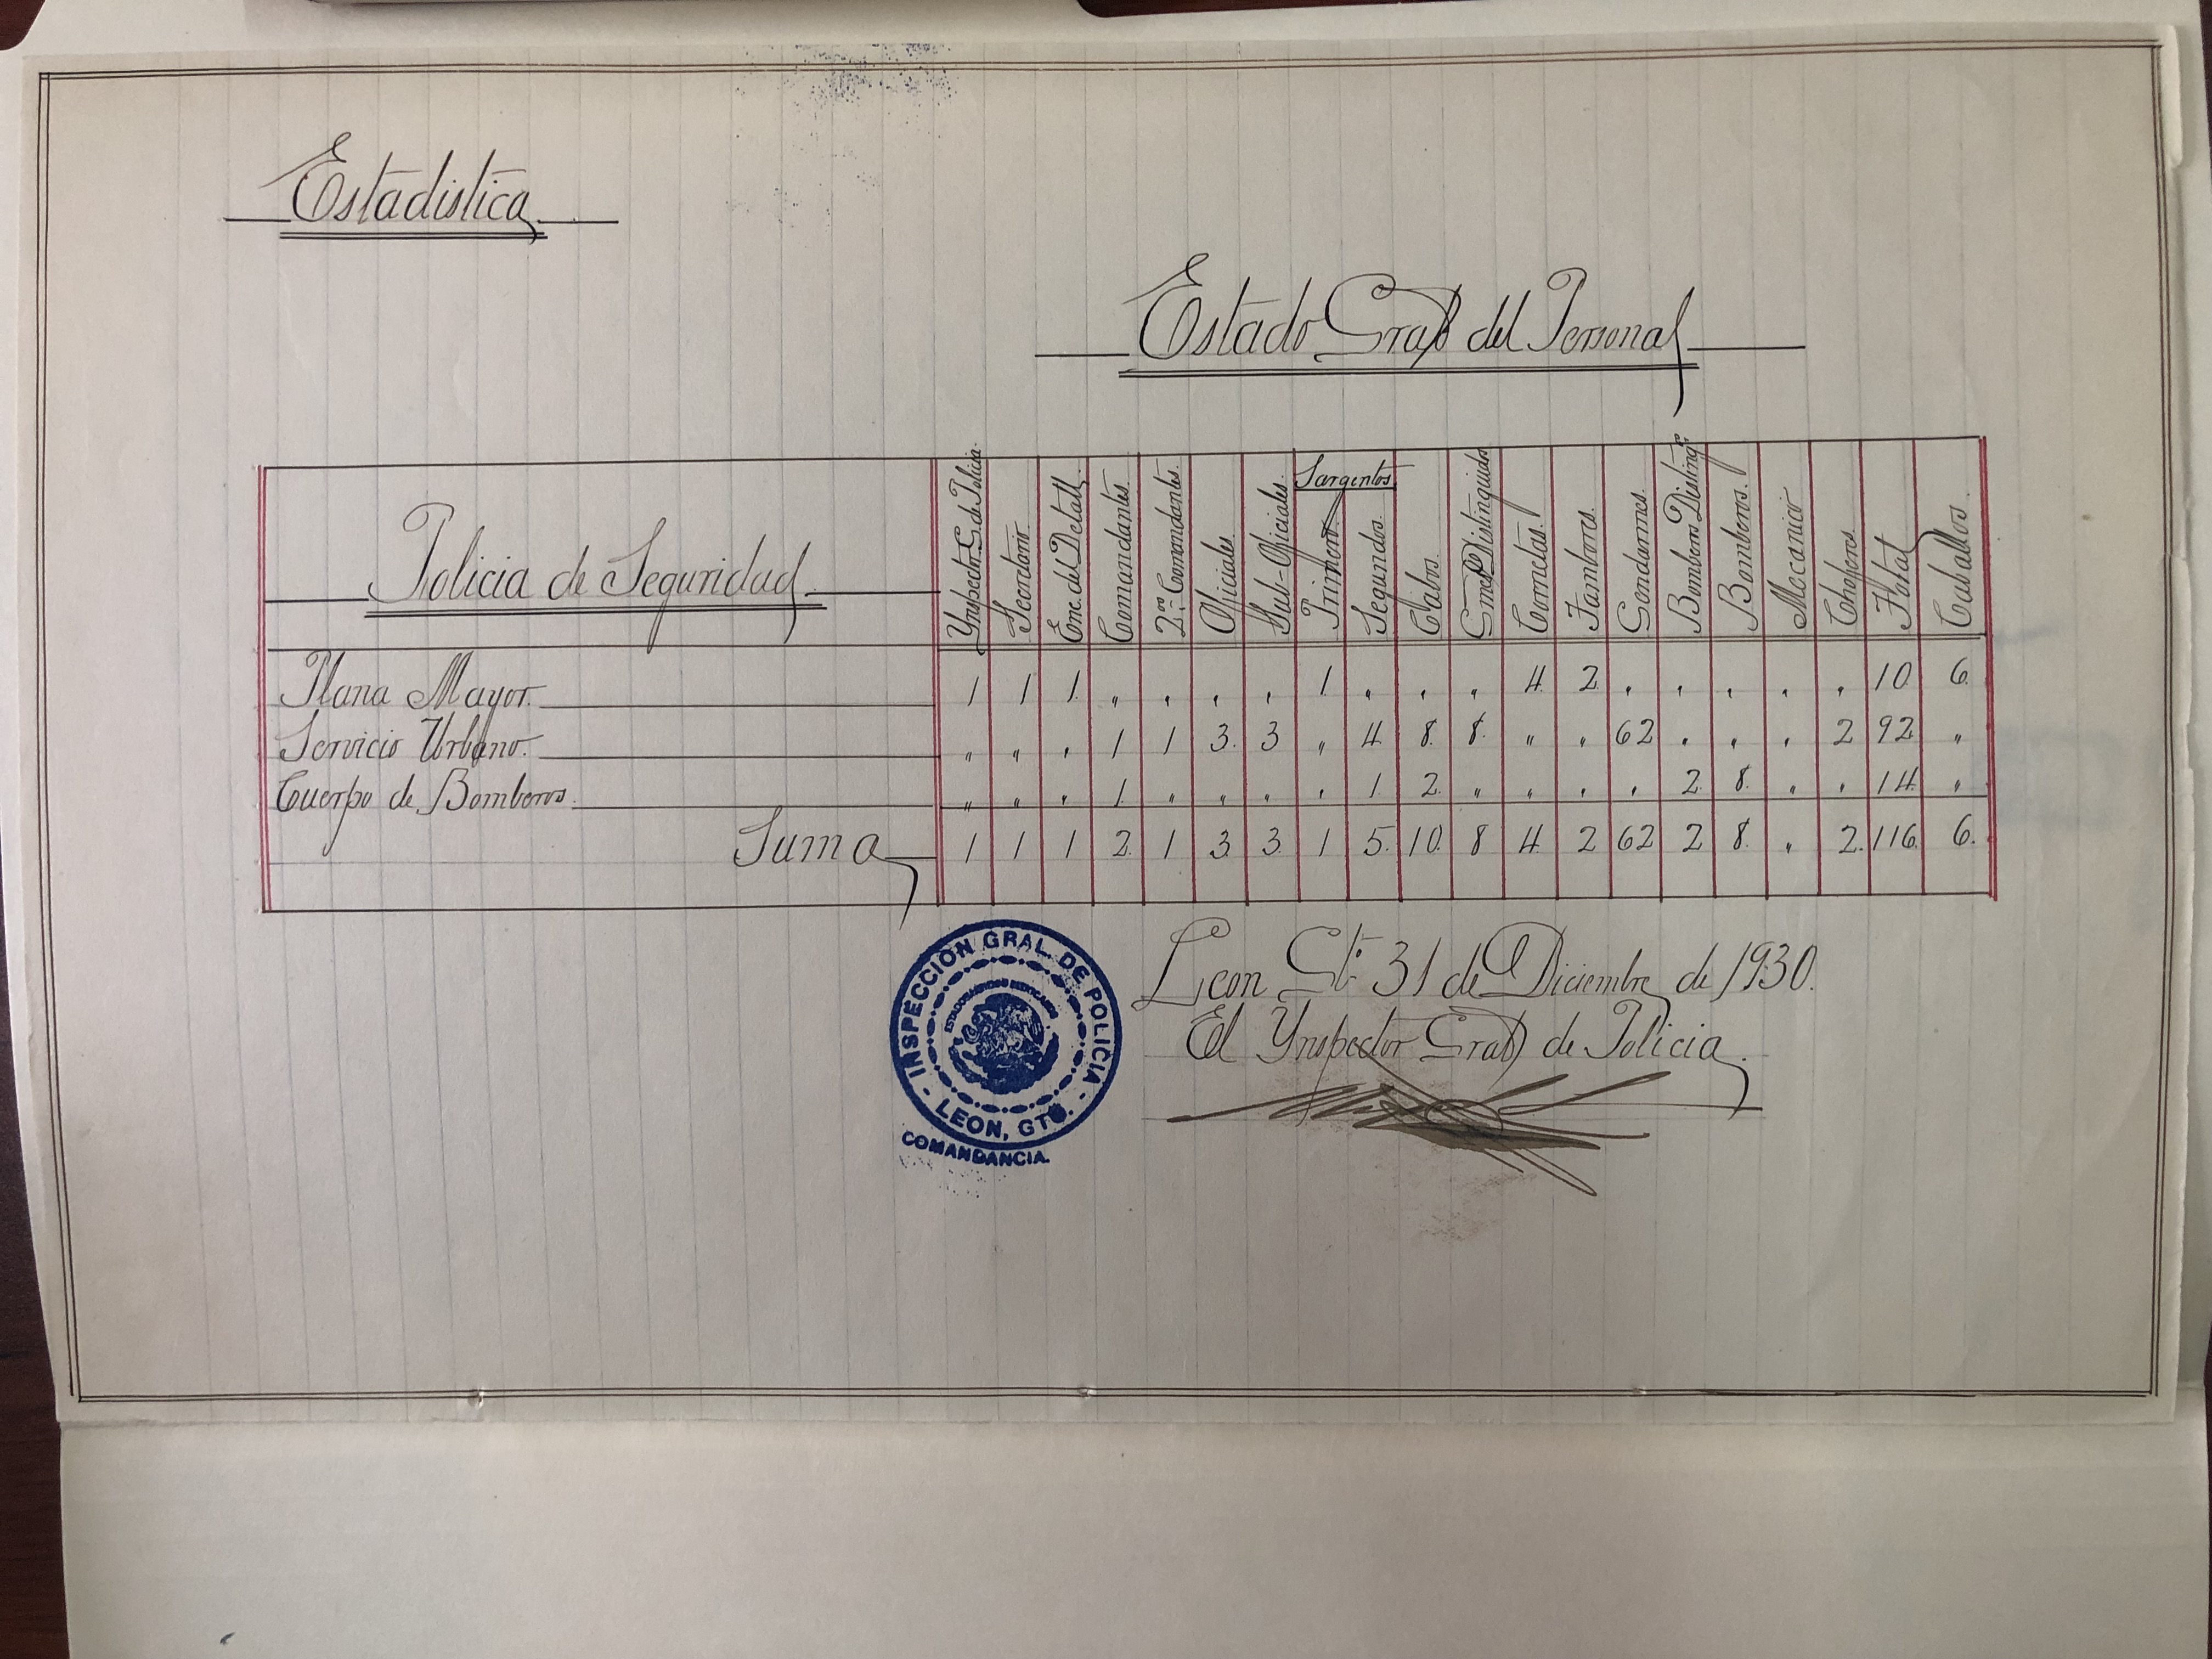 Estadistica
Estado Gral del Personal
Policia de Seguridad.
Ynspector G. de Policia.
Secretario.
Enc. del Detall.
Comandantes.
2os Comandantes.
Oficiales
Sub-Oficiales.
Sargentos
Primeros.
Segundos.
Cabos.
Gmes Distinguidos
Cornetas.
Tambores.
Gendarmes.
Bomberos Disting.
Bomberos.
Mecanico
Choferes.
Total
Caballos.
Plana Mayor. 1 1 1 " " " " 1 " " " 4 2 " " " " " 10 6
Servicio Urbano. " " " 1 1 3 3 " 4 8 8 " " 62 " " " 2 92 "
Cuerpo de Bomberos. " " " 1 " " " " 1 2 " " " " 2 8 " " 14 "
Suma 1 1 1 2 1 3 3 1 5 10 8 4 2 62 2 8 " 2 116 6
Leon Gto. 31 de Diciembre de 1930.
El Ynspector Gral de Policia.
INSPECCIÓN GRAL. DE POLICIA
ESTADOS UNIDOS MEXICANOS
- LEON, GTO. -
COMANDANCIA.